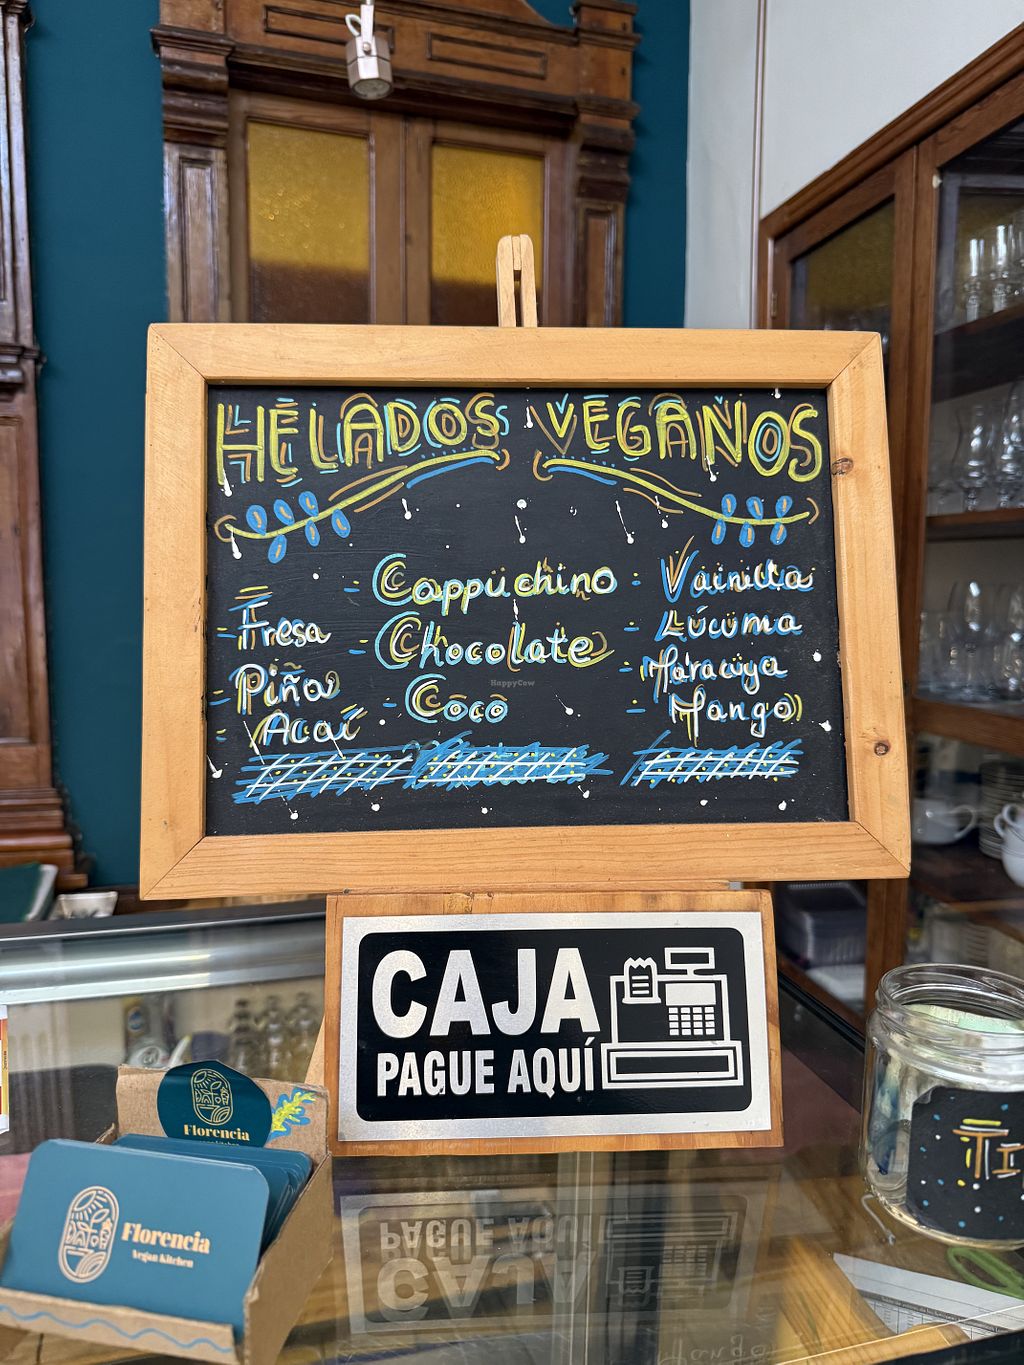 HELADOS VEGANOS
- Fresa
- Piña
- Acaí
- Cappuchino
- Chocolate
- Coco
- Vainilla
- Lúcuma
- Maracuya
- Mango
HappyCow
CAJA
PAGUE AQUÍ
Florencia
Florencia
Vegan Kitchen